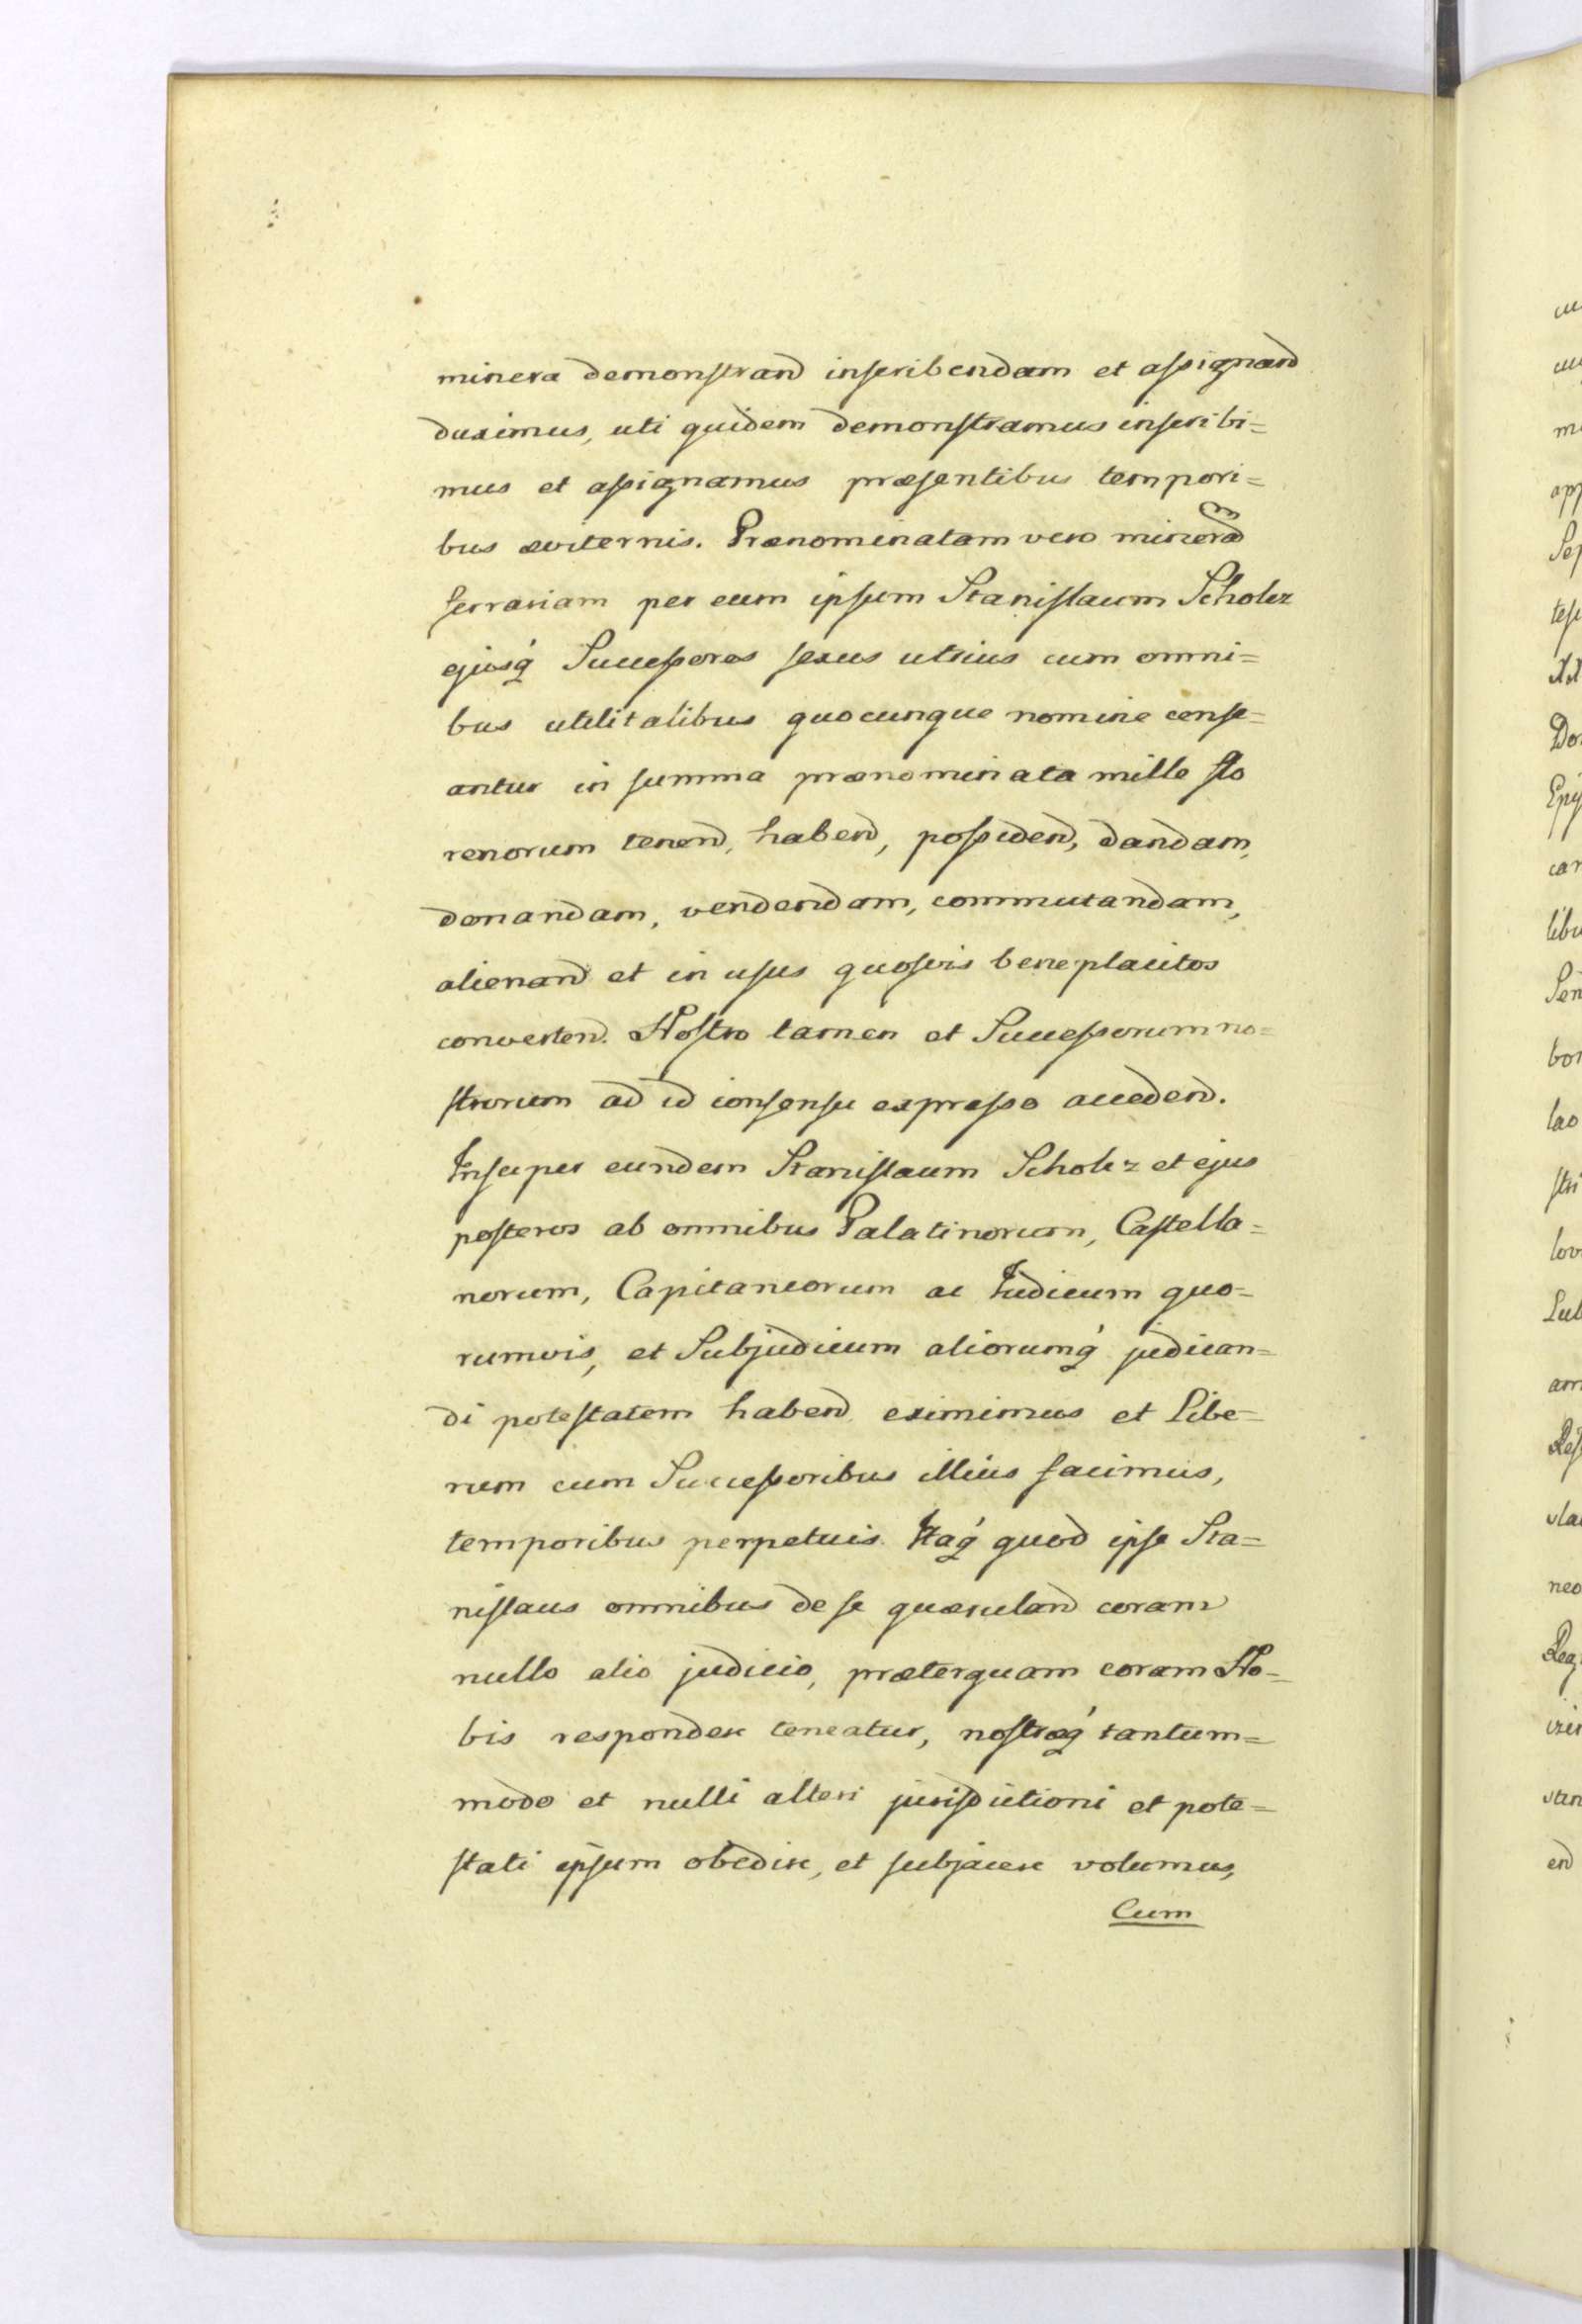 minera demonstrand inscribendam et assignand
duximus, uti quidem demonstramus inscribi=
mus et assignamus præsentibus tempori=
bus æviternis. Prænominatam vero minera͠m
ferrariam per eum ipsum Stanislaum Scholcz
ejusq́ Successores sexus utrius cum omni=
bus utilitatibus quocunque nomine conse=
antur in summa prænominata mille flo
renorum tenend, habend, possidend, dandam,
donandam, vendendam, commutandam,
alienand et in usus quosvis beneplacitos
convertend. Nostro tamen et Successorum no=
strorum ad id consensu expresso accedend.
Insuper eundem Stanislaum Scholcz et ejus
posteros ab omnibus Palatinorum, Castella=
norum, Capitaneorum ac Judicum quo=
rumvis, et Subjudicum aliorumq́ judican=
di potestatem habend eximimus et Libe=
rum cum Successoribus illius facimus,
temporibus perpetuis. Itaq́ quod ipse Sta=
nislaus omnibus de se quæreland coram
nullo alio judicio, præterquam coram No=
bis respondere teneatur, nostræq́ tantum=
modo et nulli alteri jurisdictioni et pote=
stati ipsum obedire, et subjacere volumus,
Cum